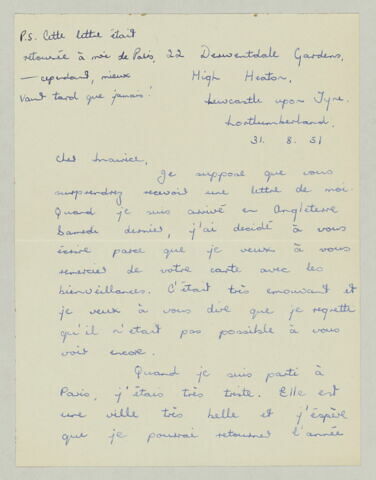 P.S. Cette lettre était
retournée à moi de Paris,
— cependant, mieux
vaut tard que jamais!
22 Derwentdale Gardens,
High Heaton,
Newcastle upon Tyne.
Northumberland.
31. 8. 51
Cher Maurice,
Je suppose que vous
surprendrez recevoir une lettre de moi.
Quand je suis arrivé en Angleterre
Samedi dernier, j'ai decidé à vous
écrire parce que je veux à vous
remercier de votre carte avec les
bienveillances. C'était très emouvant et
je veux à vous dire que je regrette
qu'il n'était pas possible à vous
voir encore.
Quand je suis parti à
Paris, j'étais très triste. Elle est
une ville très belle et j'éspère
que je pourrai retourner l'année